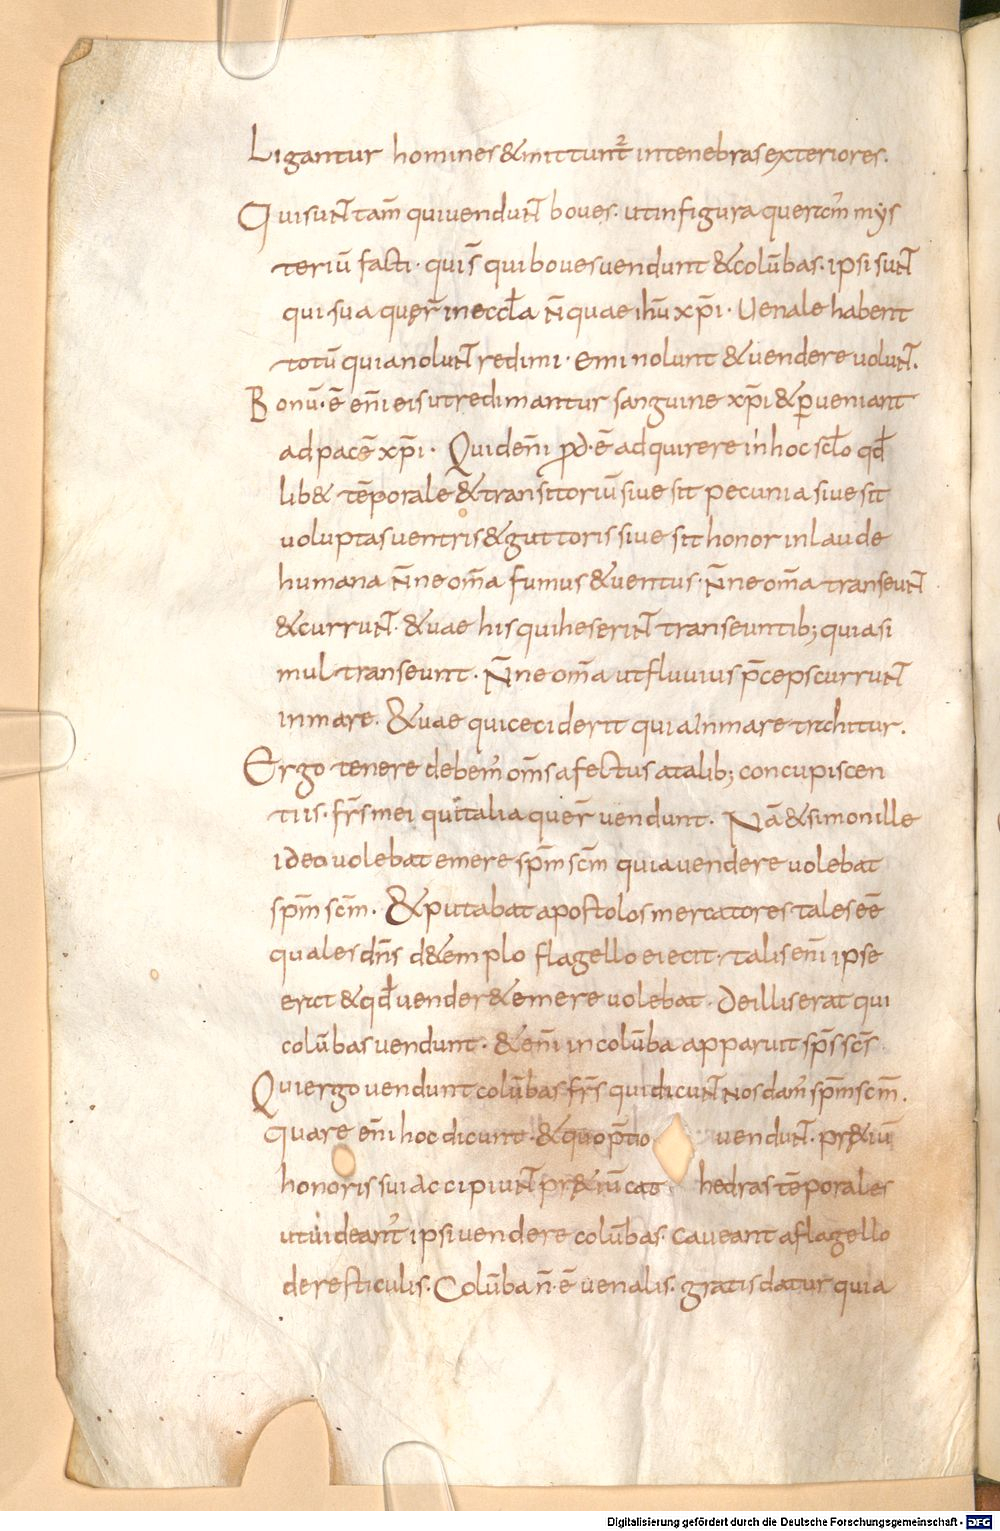 Ligantur homines & mittunt᷑ intenebras exteriores.
Qui sunt tam̄ qui vendunt boves. ut in figura querem᷑ mys
teriū facti. quis̄ qui boves vendunt & colūbas. ipsi sunt
qui sua quęr̄ in eccl̄a n̄ quae ihū xp̄i. Venale habent
totū quia nolunt redimi. emi nolunt & vendere volunt.
Bonū. ē en̄i eis ut redimantur sanguine xp̄i & ꝑveniant
ad pacē xp̄i. Quid en̄i ꝓd.ē adquirere in hoc scl̄o qd̄
lib& tēporale & transitoriū sive sit pecunia sive sit
voluptas ventris & gutturis sive sit honor in laude
humana n̄ne om̄a fumus & ventus. n̄ne om̄a transeunt
& currunt. & vae his qui heserint transeuntib; quia si
mul transeunt. N̄ne om̄a ut fluvius p̄ceps currunt
in mare. & vae qui ceciderit quia In mare trahitur.
Ergo tenere debem᷑ om̄s afectus a talib; concupiscen
tiis. fr̄s mei qui talia quer̄ vendunt. Nā & simon ille
ideo volebat emere sp̄m sc̄m quia vendere volebat
sp̄m sc̄m. & putabat apostolos mercatores tales eē
quales dn̄s d& emplo flagello eiecit. talis en̄i ipse
erat & qd̄ vender& emere volebat. De illis erat qui
colūbas vendunt. & en̄i in colūba apparuit sp̄s sc̄s
Qui ergo vendunt colūbas fr̄s qui dicunt nos dam᷑ sp̄m sc̄m.
quare en̄i hoc dicunt. & quo p̄tio vendunt. pr&iū
honoris sui Accipiunt pr&iū cathedras tēporales
ut videant᷑ ipsi vendere colūbas. Caveant a flagello
de resticulis. Colūba n̄.ē venalis. gratis datur quia
Digitalisierung gefördert durch die Deutsche Forschungsgemeinschaft - DFG